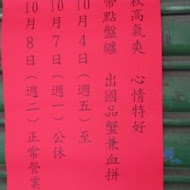 秋高氣爽 心情特好
帶點盤纏 出國品蟹兼血拼
10月4日（週五）至
10月7日（週一）公休
10月8日（週二）正常營業